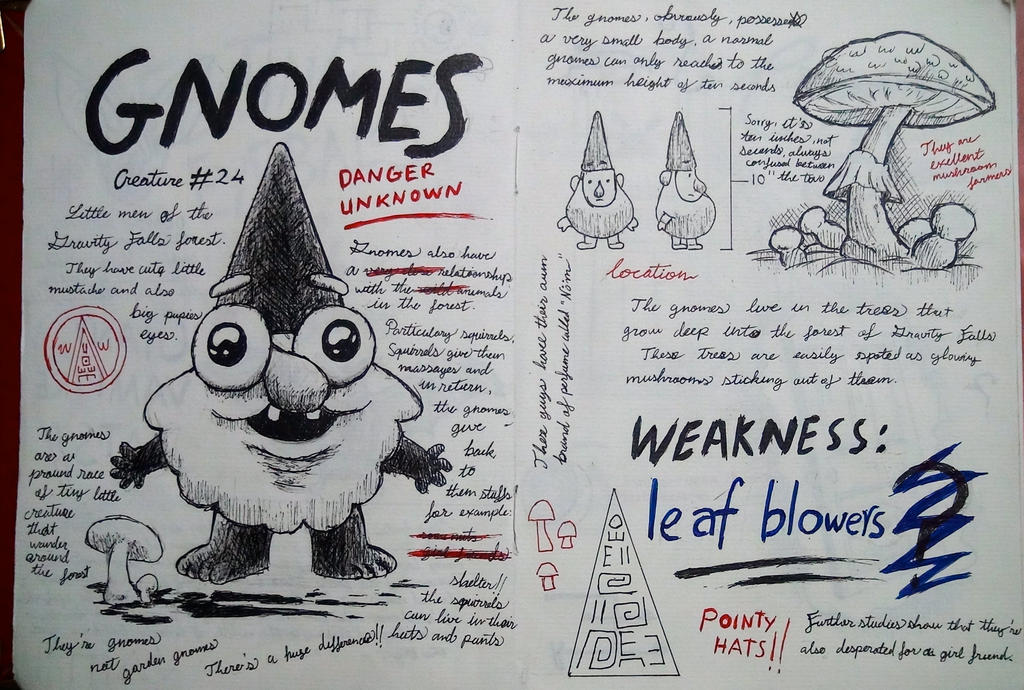 GNOMES
Creature #24
DANGER
UNKNOWN
Little men of the
Gravity Falls forest.
They have cute little
mustache and also
big pupies
eyes.
Gnomes also have
a very close relationships
with the wild animals
in the forest.
Particulary squirrels,
Squirrels give them
massages and
in return,
the gnomes
give
back
to
them stuffs
for example:
girl friends
shelter!!
the squirrels
can live in their
hats and pants
The gnomes
are a
pround race
of tiny little
creature
that
wander
around
the forest
They're gnomes
not garden gnomes
There's a huge difference!!
The gnomes, obviously, possesses
a very small body, a normal
gnomes can only reached to the
maximum height of ten seconds
Sorry, it's
ten inches, not
seconds, always
confused between
the two
10"
They are
exellent
mushroom
farmers
location
These guys' have their own
brand of perfume called "Nôm"
The gnomes live in the trees that
grow deep into the forest of Gravity Falls
These trees are easily spoted as glowing
mushrooms sticking out of them.
WEAKNESS:
leaf blowers ?
POINTY
HATS!!
Further studies show that they're
also desperated for a girl friend.